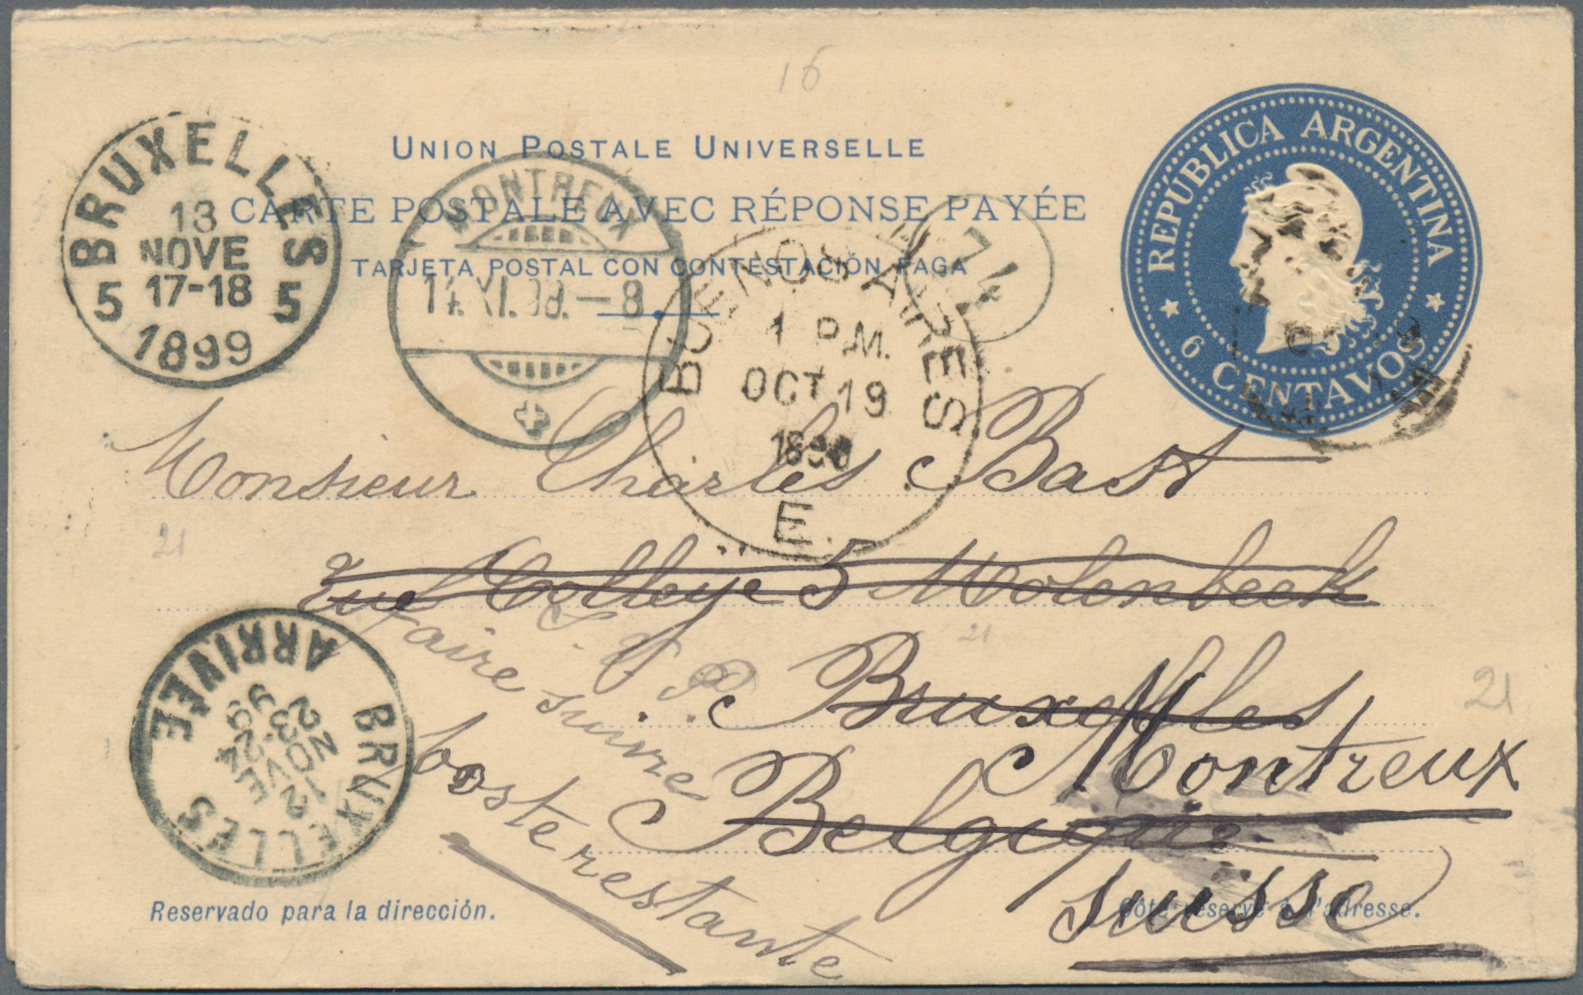 16
UNION POSTALE UNIVERSELLE
CARTE POSTALE AVEC RÉPONSE PAYÉE
TARJETA POSTAL CON CONTESTACIÓN PAGA
REPUBLICA ARGENTINA
6 CENTAVOS
BRUXELLES
13
NOVE
17-18
5 5
1899
MONTREUX
14.XI.99.-8.
74
BUENOS AIRES
1 P.M.
OCT 19
E.
Monsieur Charles Bast
rue Colleye 5 Molenbeek
21
21
21
S. V. P.
faire suivre
Bruxelles
Montreux
Belgique
Suisse
poste restante
BRUXELLES
ARRIVÉE
12
NOVE
23-24
99
Reservado para la dirección.
Côté réservé à l'adresse.